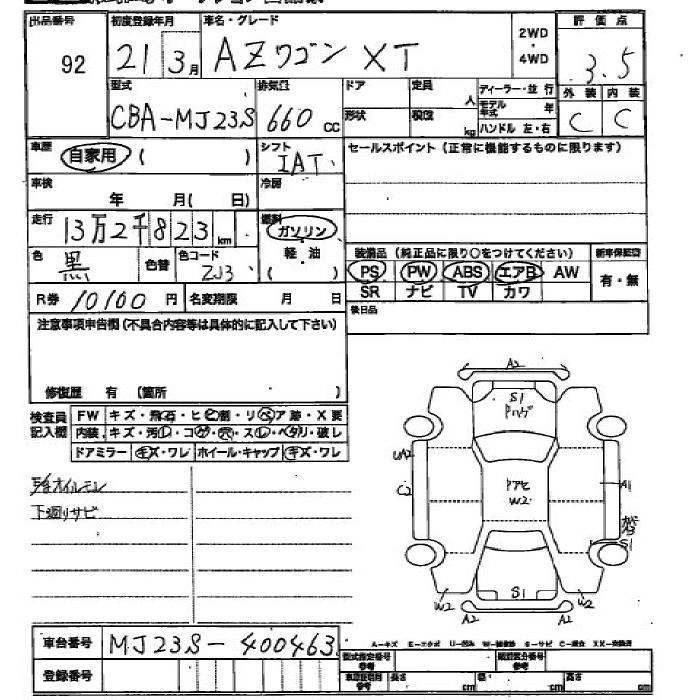 出品番号 初度登録年月 車名・グレード 2WD・4WD 評価点
92 21 3月 AZワゴン XT 3.5
型式 排気量 ドア 定員 人 ディーラー・並行 外装 内装
CBA-MJ23S 660 cc 形状 積放 kg モデル年式 年 C C
ハンドル 左・右
車歴 自家用 ( ) シフト IAT セールスポイント (正常に機能するものに限ります)
車検 年 月( 日) 冷房
走行 13万2千823km 燃料 ガソリン
軽油
( )
色 黒 色替 色コード ZJ3 装備品 (純正品に限り○をつけてください) 新車保証書
PS PW ABS エアB AW 有・無
SR ナビ TV カワ
R券 10100円 名変期限 月 日 後日品
注意事項申告欄(不具合内容等は具体的に記入して下さい)
修復歴 有 (箇所 )
検査員記入欄 FW キズ・飛石・ヒビ割・リペア跡・X要
内装 キズ・汚レ・コゲ・穴・スレ・ベタリ・破レ
ドアミラー キズ・ワレ ホイール・キャップ キズ・ワレ
オイルモレ
下廻りサビ
A2
S1
Pハゲ
UA2
C2
Pアセ
W2
A1
S1
S1
W2
W2
A2
A2
車台番号 MJ23S-400463
登録番号
A-キズ E-エクボ U-凹み W-補修跡 S-サビ C-腐食 XX-交換済
型式指定番号 参考 類別区分番号 参考
車車証明用 参考 長さ cm 幅 cm 高さ cm